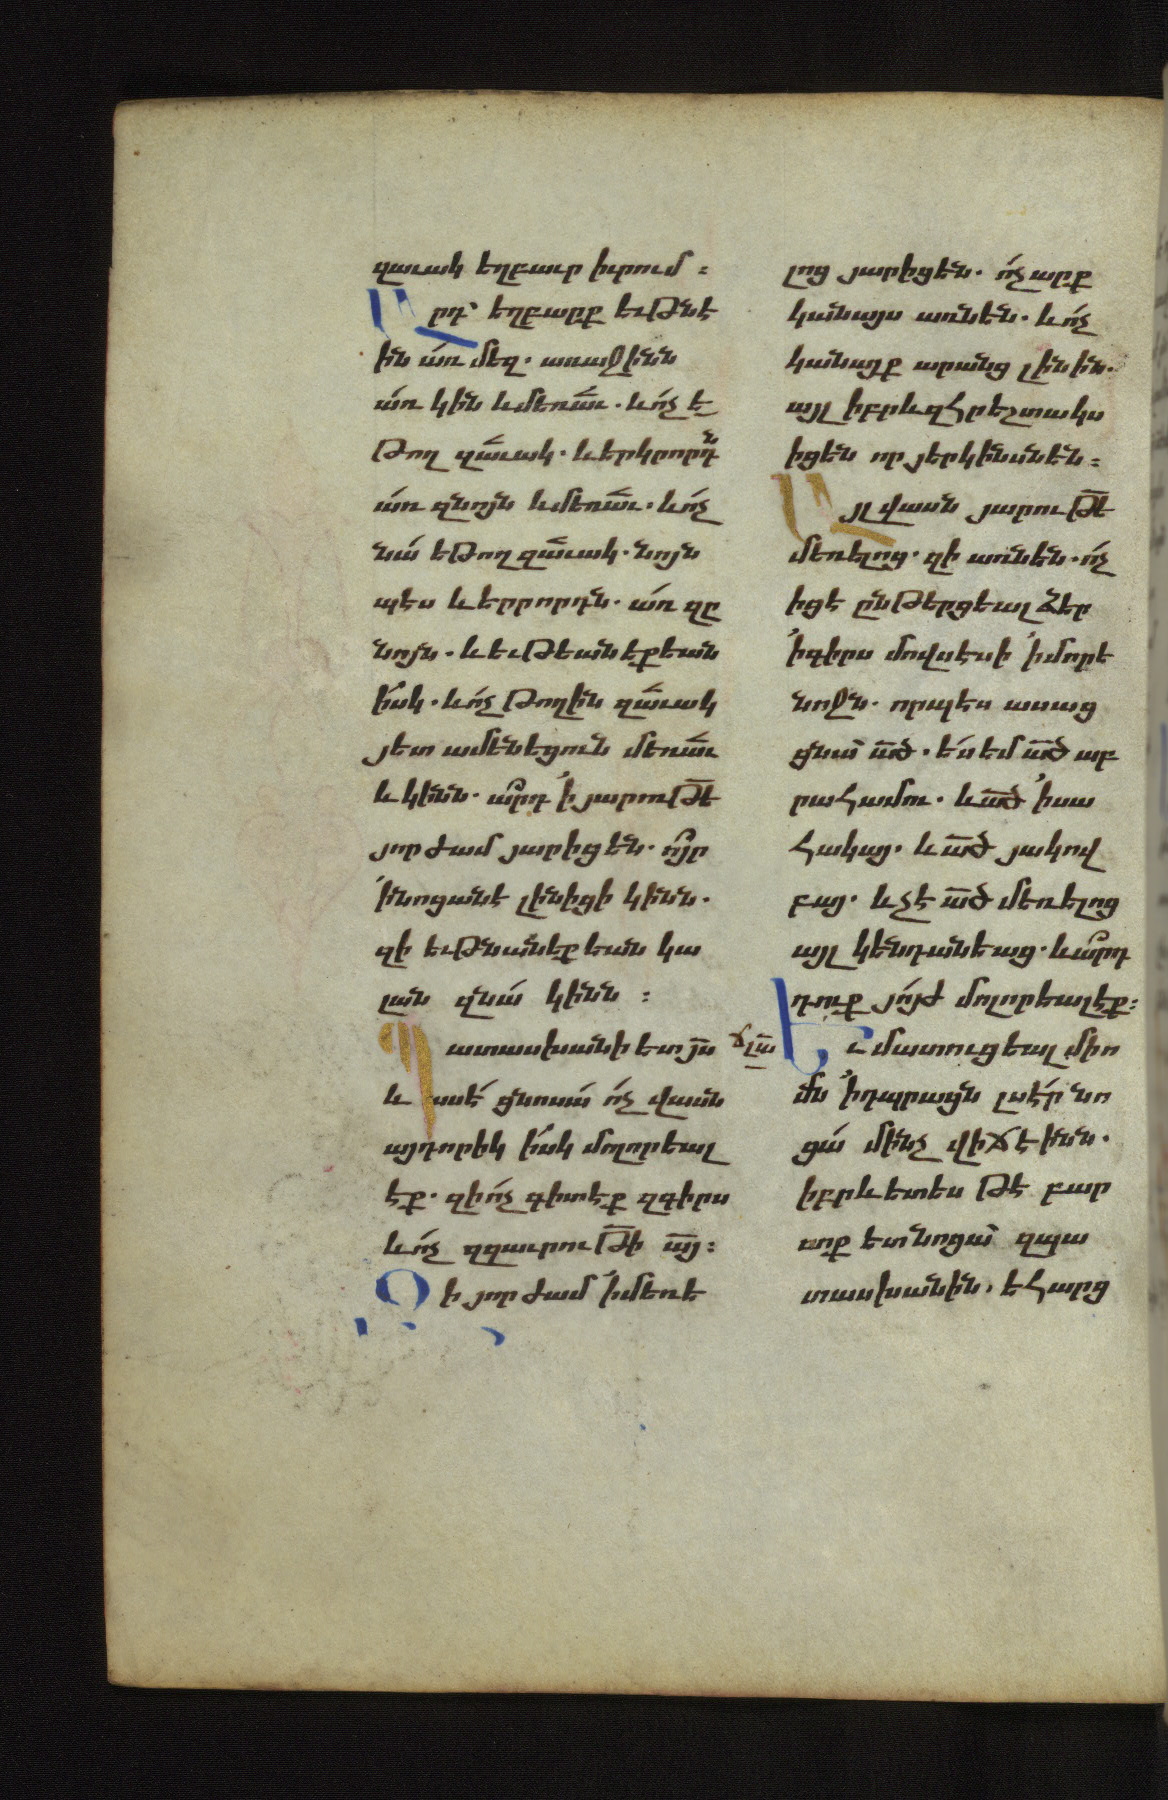 զաւակ եղբաւր իւրում ։
Արդ՝ եղբարք եւթնէ
ին առ մեզ. առաջինն
առ կին և մեռաւ. և ոչ ե
թող զաւակ. և երկրորդն
առ զնոյն և մեռաւ. և ոչ
նա եթող զաւակ. նոյն
պէս և երրորդն. առ զը
նոյն. և եւթեանեքեան
իսկ. և ոչ թողին զաւակ
յետ ամենեցուն մեռաւ
և կինն. արդ ՚ի յարութե՟
յորժամ յարիցեն. ոյր
՚ի նոցանէ լինիցի կինն.
զի եւթնանեքեան կա
լան զնա կինն ։
Պատասխանի ետ յս՟
և ասէ ցնոսա ոչ վասն
այդորիկ իսկ մոլորեալ
էք. զի ոչ գիտէք զգիրս
և ոչ զզաւրութի՟ այ՟ ։
Զի յորժամ ՚ի մեռե
ճլա
լոց յարիցեն. ոչ արք
կանայս առնեն. և ոչ
կանայք արանց լինին.
այլ իբրև զհրեշտակս
իցեն որ յերկինսնեն ։
Այլ վասն յարութե՟
մեռելոց. զի առնեն. ոչ
իցէ ընթերցեալ ձեր
՚ի գիրս մովսէսի ՚ի մորե
նոջն. որպէս ասաց
ցնա ած՟. ես եմ ած՟ աբ
րահամու. և ած՟ ՚իսա
հակայ. և ած՟ յակով
բայ. և չէ ած՟ մեռելոց
այլ կենդանեաց. և արդ
դուք յոյժ մոլորեալ էք ։
Եւ մատուցեալ մի ո
մն ՚ի դպրացն լսէր նո
ցա մինչ վիճէինն.
իբրև ետես թէ բար
ւոք ետ նոցա՝ զպա
տասխանին, եհարց